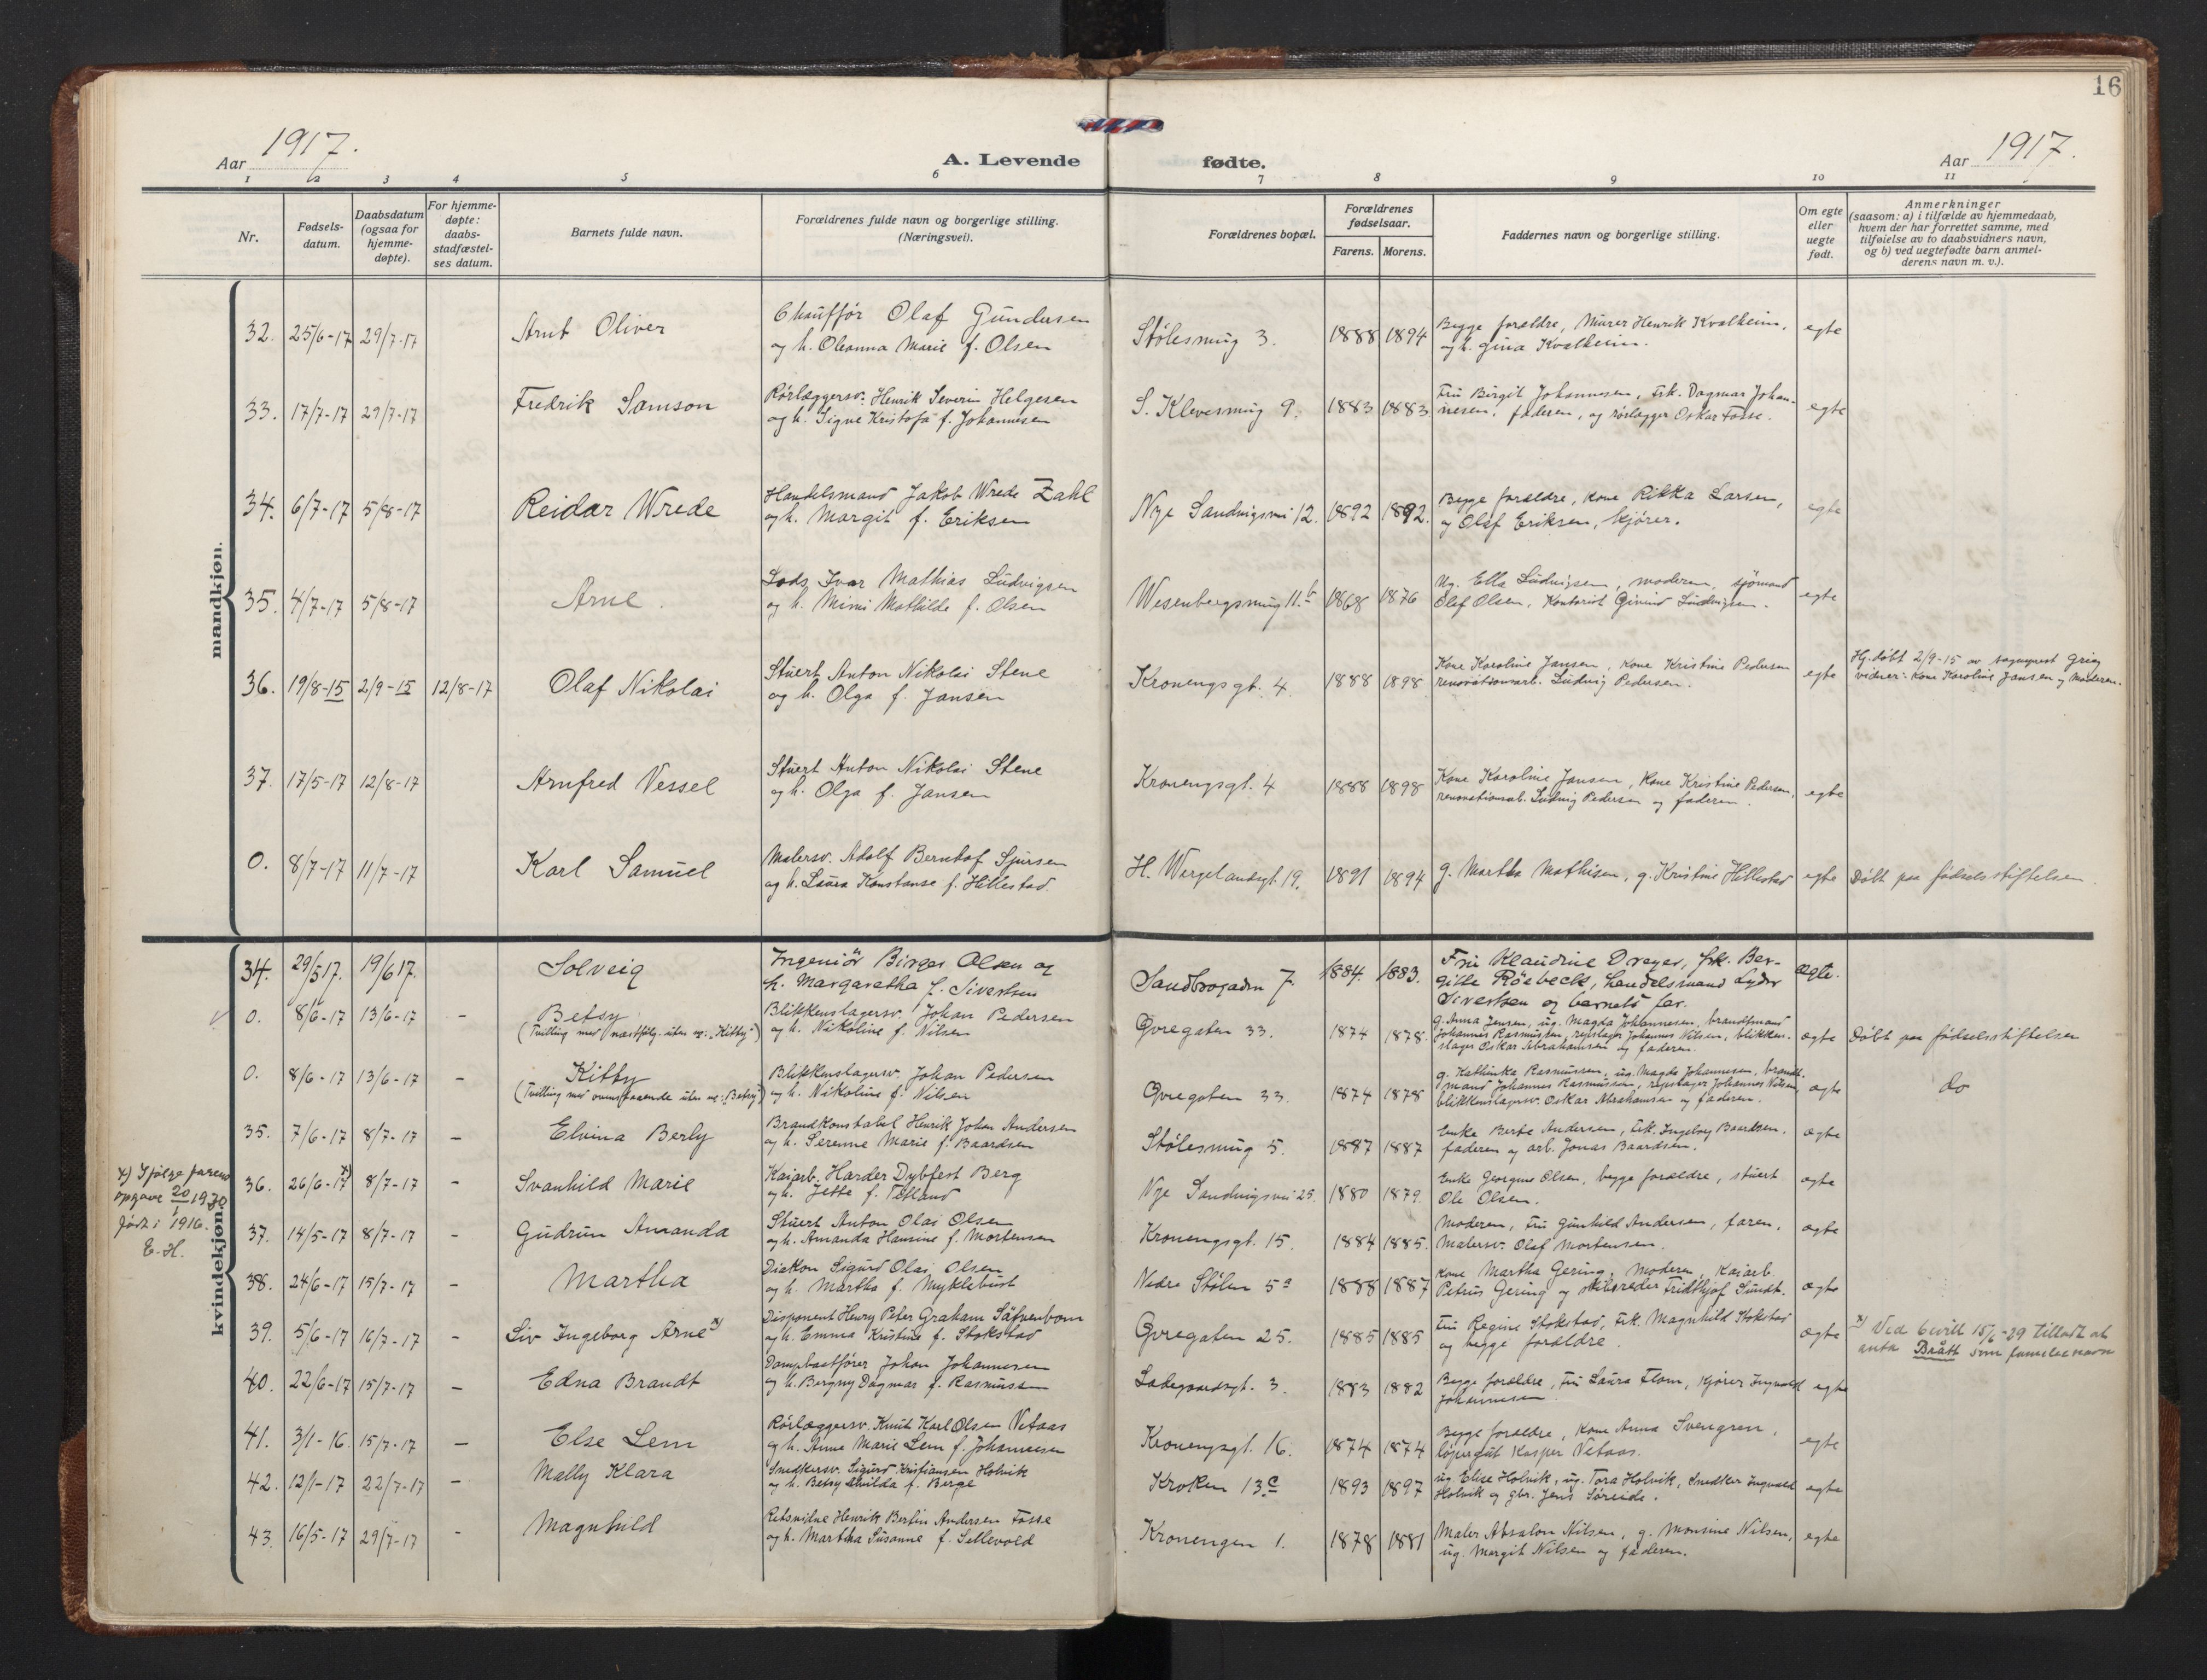 16
Aar 1917.
A. Levende fødte.
Aar 1917.
1 2 3 4 5 6 7 8 9 10 11
Nr.
Fødsels-
datum.
Daabsdatum
(ogsaa for
hjemme-
døpte).
For hjemme-
døpte:
daabs-
stadfæstel-
ses datum.
Barnets fulde navn.
Forældrenes fulde navn og borgerlige stilling.
(Næringsvei).
Forældrenes bopæl.
Forældrenes
fødselsaar.
Farens. Morens.
Faddernes navn og borgerlige stilling.
Om egte
eller
uegte
født.
Anmerkninger
(saasom: a) i tilfælde av hjemmedaab,
hvem der har forrettet samme, med
tilføielse av to daabsvidners navn,
og b) ved uegtefødte barn anmel-
derens navn m. v.).
mandkjøn.
32. 25/6-17 29/7-17 Arnt Oliver
Chauffør Olaf Gundersen
og h. Oleanna Marie f. Olsen
Stølesmug 3. 1888 1894
Begge forældre, Murer Henrik Kvalheim,
og h. Gina Kvalheim.
egte
33. 17/7-17 29/7-17 Fredrik Samson
Rørlæggersv. Henrik Severin Helgesen
og h. Signe Kristofa f. Johannesen
S. Klevesmug 9. 1883 1883
Fru Birgit Johannesen, frk. Dagmar Johan-
nesen, faderen, og rørlægger Oskar Fosse.
egte
34. 6/7-17 5/8-17 Reidar Wrede
Handelsmand Jakob Wrede Zahl
og h. Margit f. Eriksen
Nye Sandvigsvei 12. 1892 1892.
Begge forældre, kone Rikka Larsen,
og Olaf Eriksen, kjører.
egte
35. 4/7-17 5/8-17 Arne.
Lods Ivar Mathias Ludvigsen
og h. Mimi Mathilde f. Olsen
Wesenbergsmug 11.b 1868 1876
Ug. Ella Ludvigsen, moderen, sjømand
Olef Olsen, Kontorist Ludvigsen.
egte
36. 19/8-15 2/9-15 12/8-17 Olaf Nikolai
Stuert Anton Nikolai Stene
og h. Olga f. Jansen
Kronengsgt. 4. 1888 1898
Kone Karoline Jansen, kone Kristine Pedersen
renovationsarb. Ludvig Pedersen.
egte
Hj. døbt 2/9-15 av sogneprest Grieg
vidner: Kone Karoline Jansen og Moderen.
37. 17/5-17 12/8-17 Arnfred Vessel
Stuert Anton Nikolai Stene
og h. Olga f. Jansen
Kronengsgt. 4 1888 1898
Kone Karoline Jansen, Kone Kristine Pedersen,
renovationsarb. Ludvig Pedersen og faderen.
egte
0. 8/7-17 11/7-17 Karl Samuel
Malersv. Adolf Berntof Sjursen
og h. Laura Konstanse f. Hillestad.
H. Wergelandsgt. 19. 1891 1894
g. Martha Mathisen, g. Kristine Hillestad
egte Døbt paa fødselsstiftelsen.
kvindekjøn.
34. 29/5 17. 19/6 17. Solveig
Ingeniør Birger Olsen og
h. Margaretha f. Sivertsen
Sandbrogaden 7. 1884. 1883.
Fru Klaudine Dreyer, frk. Ber-
gitte Röebeck, handelsmand Lyder
Sivertsen og barnets far.
ægte.
0. 8/6-17 13/6-17 – Betsy
(Tvilling med næstfølg. uten nr: "Kitty")
Blikkenslagersv. Johan Pedersen
og h. Nikoline f. Nilsen
Øvregaten 33. 1874 1878.
g. Anna Jensen, ug. Magda Johannesen, brandtmand
Johannes Rasmussen, repslager Johannes Nilsen, blikken-
slager Oskar Abrahamsen og faderen.
ægte Døbt paa fødselsstiftelsen
0. 8/6-17 13/6-17 – Kitty
(Tvilling med ovenstaaende uten nr: "Betsy")
Blikkenslagersv. Johan Pedersen
og h. Nikoline f. Nilsen
Øvregaten 33. 1874 1878
g. Kathinka Rasmussen, ug. Magda Johannesen, brandt-
mand Johannes Rasmussen, repslager Johannes Nilsen,
blikkenslagersv. Oskar Abrahamsen og faderen.
ægte do
35. 7/6-17 8/7-17 – Elvina Berly
Brandkonstabel Henrik Johan Andersen
og h. Serenne Marie f. Baardsen
Stølesmug 5. 1887 1887
Enke Berte Andersen, frk. Ingeborg Baardsen.
faderen og arb. Jonas Baardsen.
ægte
x) Ifølge farens
opgave 20/1 1930
født i 1916.
E. H.
36. 26/6-17 x) 8/7-17 – Svanhild Marie
Kaiarb. Harder Dybfest Berg
og h. Jette f. Tolland
Nye Sandvigsvei 25. 1880 1879.
Enke Georgine Olsen, begge forældre, stuert
Ole Olsen.
ægte
37. 14/5-17 8/7-17 – Gudrun Amanda
Stuert Anton Olai Olsen
og h. Amanda Hansine f. Mortensen
Kronengsgt. 15. 1884 1885.
Moderen, Fru Gunhild Andersen, faren,
Malersv. Olaf Mortensen.
ægte
38. 24/6-17 15/7-17 – Martha
Diakon Sigurd Olai Olsen
og h. Martha f. Myklebust
Nedre Stølen 5a 1888 1887
Kone Martha Gering, moderen, Kaiarb.
Petrus Gering og skibsreder Fridthjof Sundt.
ægte
39. 5/6-17 16/7-17 – Liv Ingeborg Arne x)
Disponent Henry Peter Graham Säfvenbom
og h. Emma Kristine f. Stokstad
Øvregaten 25. 1885 1885
Fru Regine Stokstad, frk. Magnhild Stokstad
og begge forældre.
ægte
x) Ved bevill 15/6-29 tilladt at
anta Brått som familienavn
40. 22/6-17 15/7-17 – Edna Brandt
Dampbaatfører Johan Johannesen
og h. Bergny Dagmar f. Rasmussen
Ladegaardsgt. 3. 1883 1882
Begge forældre, Fru Laura Flom, Kjører Ingvald
Johannesen.
egte
41. 3/1-16. 15/7-17 – Else Lem
Rørlæggersv. Knut Karl Olsen Vetaas
og h. Anna Marie Lem f. Johannesen
Kronengsgt. 16. 1874 1874
Begge forældre, Kone Anna Svengren,
løpergut Kasper Vetaas.
egte
42. 12/1-17 22/7-17 – Mally Klara
Snedkersv. Sigurd Kristiansen Holvik
og h. Betsy f. Berge
Kroken 13c 1893 1897
ug. Elise Holvik, ug. Tora Holvik, Snedker Ingvald
Holvik og gbr. Jens Søreide.
egte
43. 16/5-17 29/7-17 – Magnhild
Retsvidne Henrik Bertin Andersen Fosse
og h. Martha Susanne f. Sellevold
Kronengen 1. 1878 1881
Maler Absalon Nilsen, g. Monsine Nilsen,
ug. Margit Nilsen og faderen.
egte